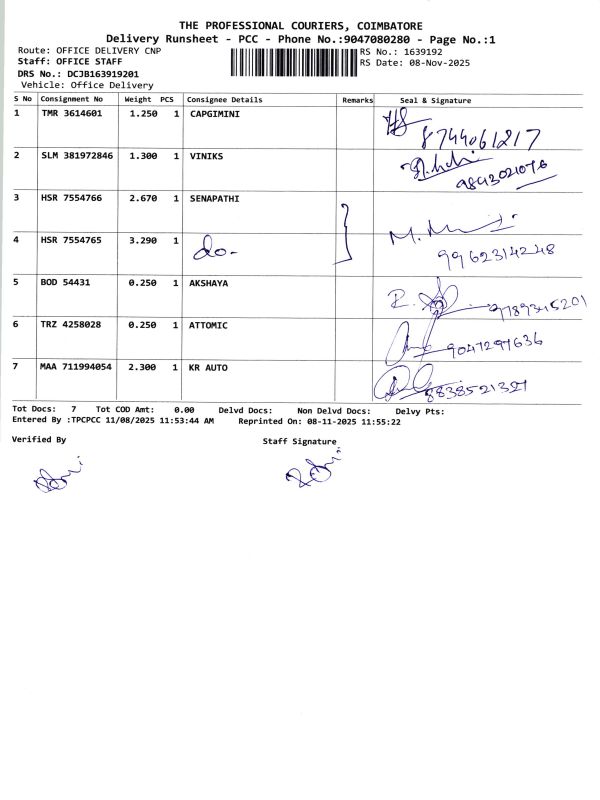 THE PROFESSIONAL COURIERS, COIMBATORE
Delivery Runsheet - PCC - Phone No.:9047080280 - Page No.:1
Route: OFFICE DELIVERY CNP
RS No.: 1639192
Staff: OFFICE STAFF
RS Date: 08-Nov-2025
DRS No.: DCJB163919201
Vehicle: Office Delivery
S No Consignment No Weight PCS Consignee Details Remarks Seal & Signature
1 TMR 3614601 1.250 1 CAPGIMINI
8744061217
2 SLM 381972846 1.300 1 VINIKS
9843021076
3 HSR 7554766 2.670 1 SENAPATHI
4 HSR 7554765 3.290 1 do-
9962314248
5 BOD 54431 0.250 1 AKSHAYA
9789345201
6 TRZ 4258028 0.250 1 ATTOMIC
9047297636
7 MAA 711994054 2.300 1 KR AUTO
8838521327
Tot Docs: 7 Tot COD Amt: 0.00 Delvd Docs: Non Delvd Docs: Delvy Pts:
Entered By :TPCPCC 11/08/2025 11:53:44 AM Reprinted On: 08-11-2025 11:55:22
Verified By Staff Signature